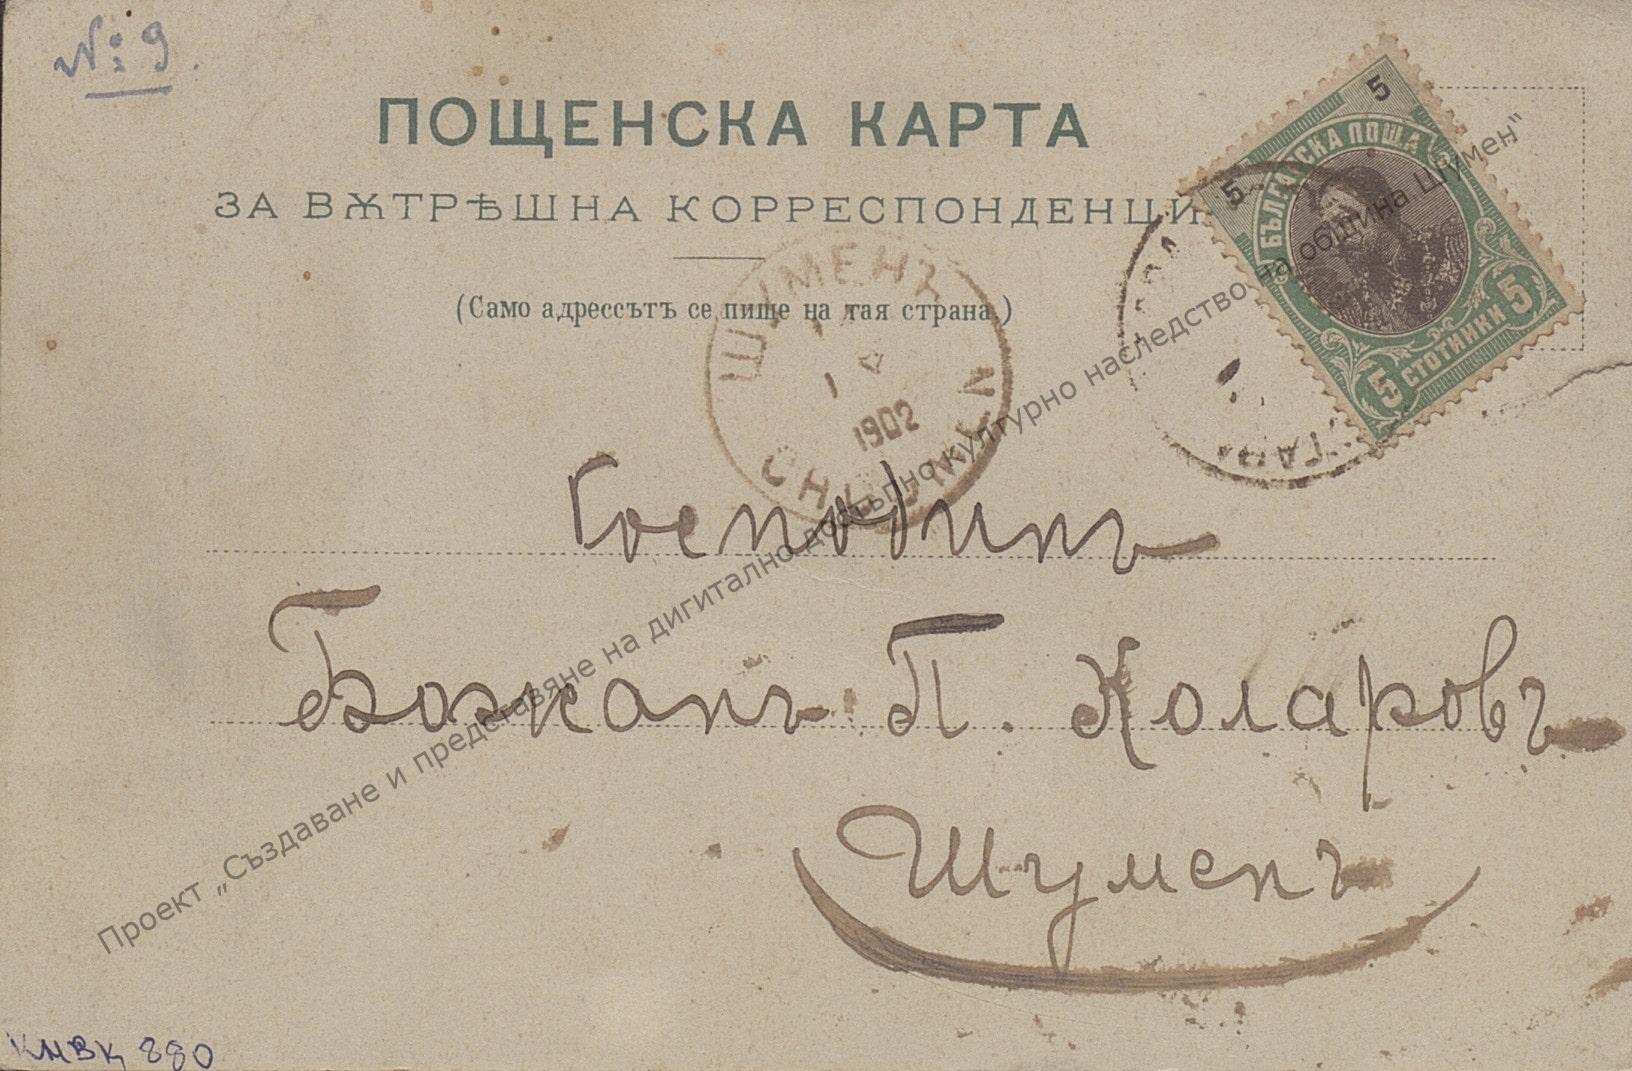 № 9.
ПОЩЕНСКА КАРТА
ЗА ВѪТРѢШНА КОРРЕСПОНДЕНЦИ
(Само адрессътъ се пише на тая страна.)
5
5
БЪЛГАРСКА ПОЩА
5 СТОТИНКИ 5
ШУМЕНЪ
1
1902
CHOUMEN
Господинъ
Божанъ П. Коларовъ
Шуменъ
КМВК 880
Проект „Създаване и представяне на дигитално достъпно културно наследство на община Шумен“